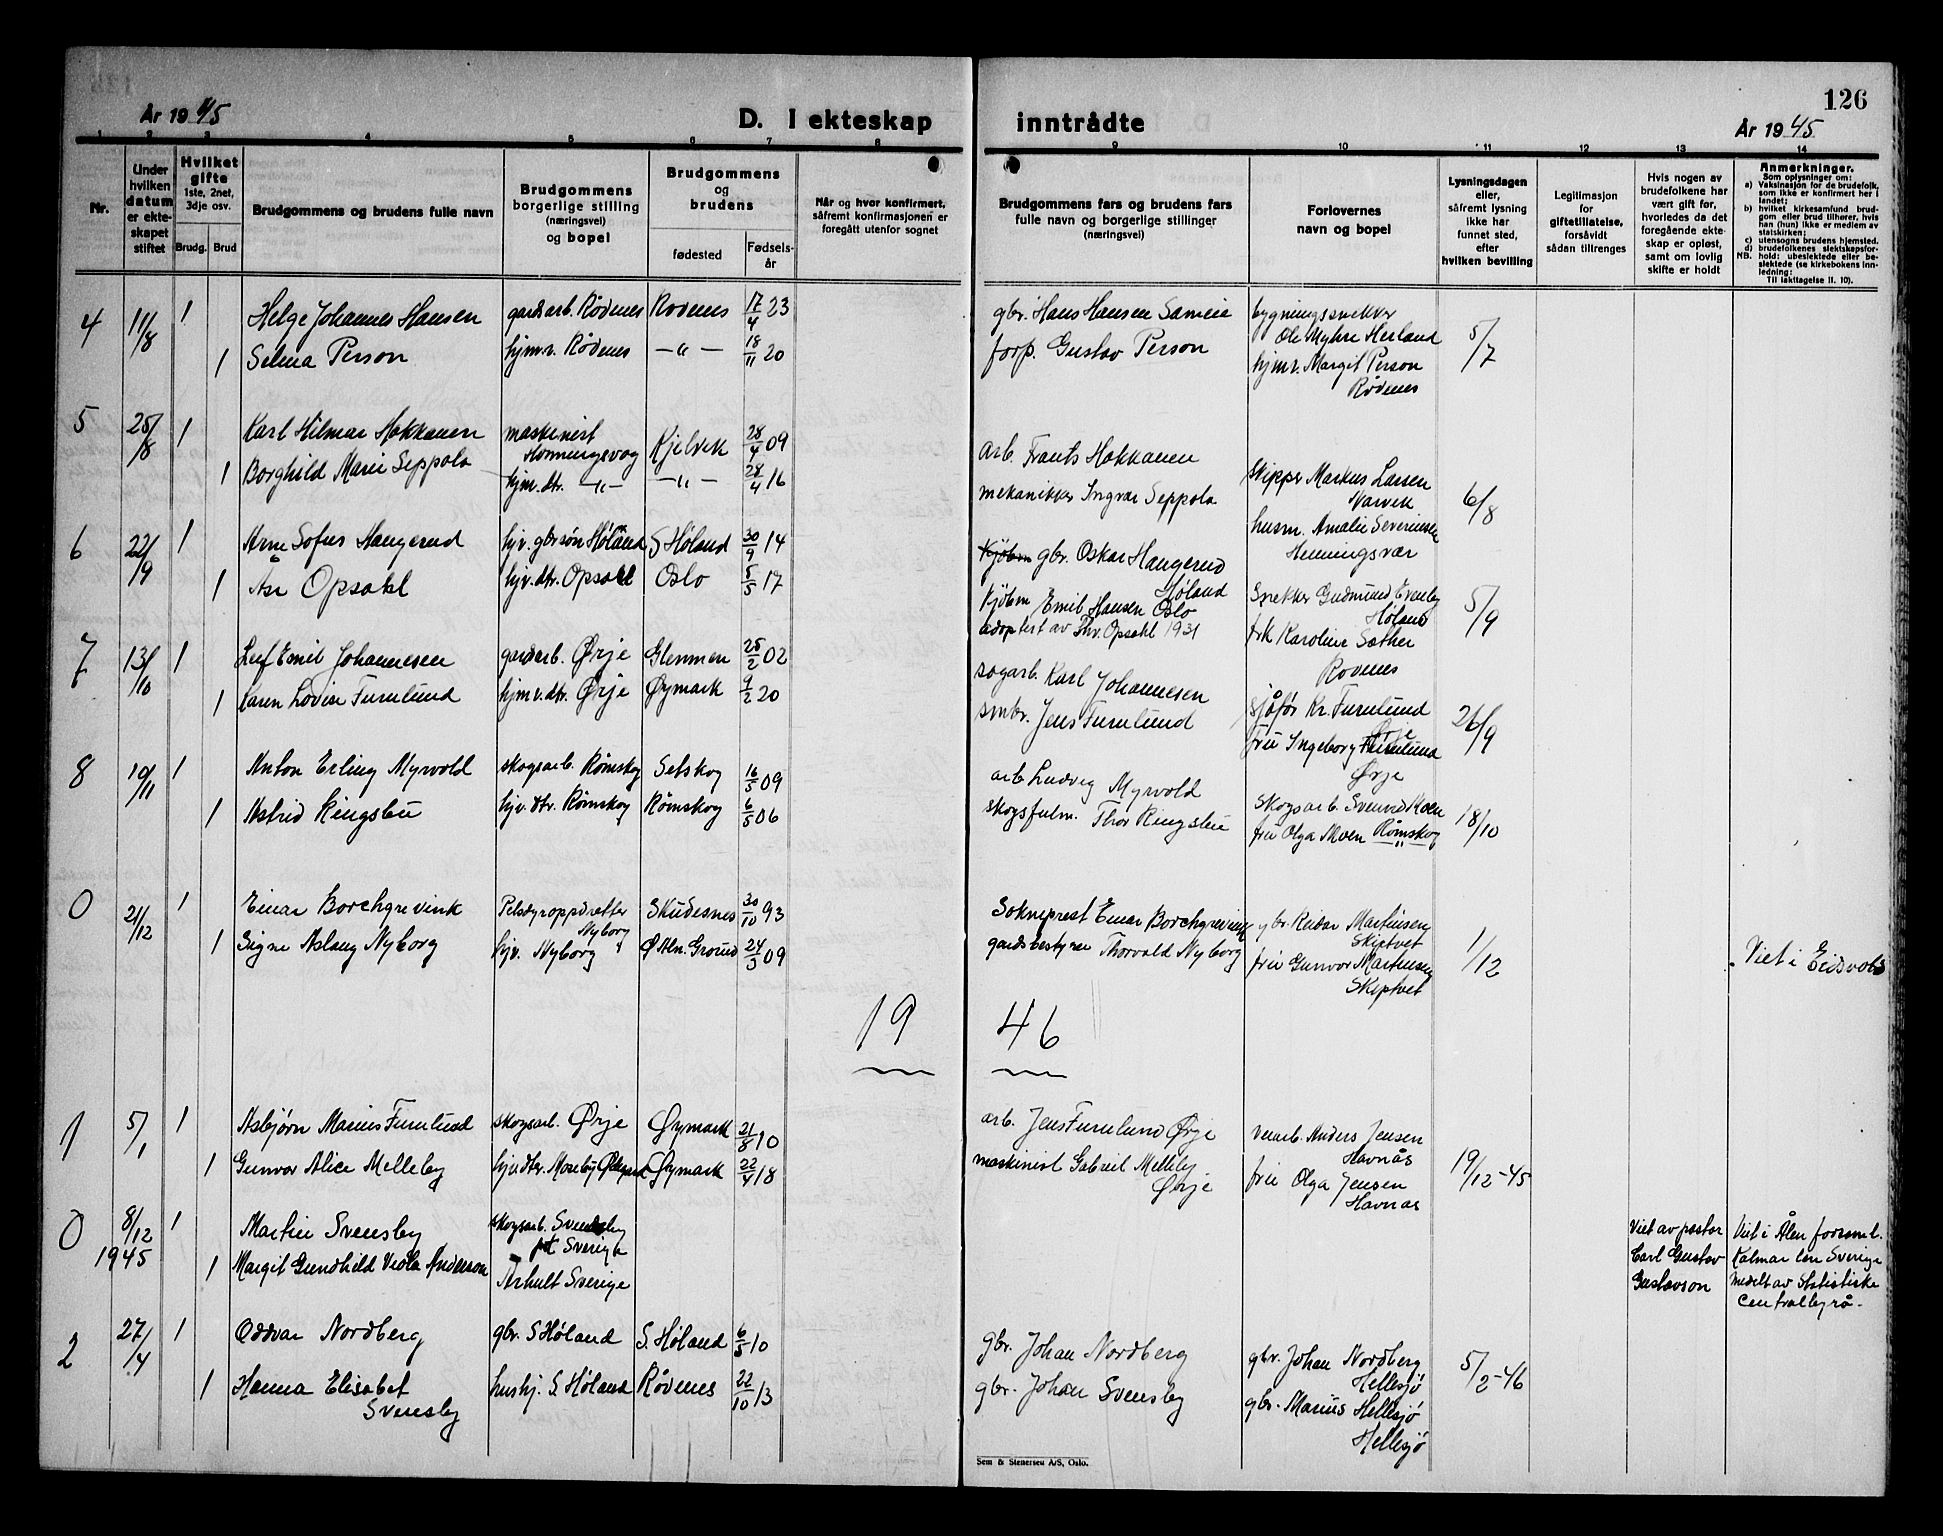 126
År 1945
D. I ekteskap inntrådte
År 1945
1 2 3 4 5 6 7 8 9 10 11 12 13 14
Nr.
Under hvilken datum er ekteskapet stiftet
Hvilket gifte 1ste, 2net, 3dje osv.
Brudg. Brud
Brudgommens og brudens fulle navn
Brudgommens borgerlige stilling (næringsvei) og bopel
Brudgommens og brudens
fødested
Fødselsår
Når og hvor konfirmert, såfremt konfirmasjonen er foregått utenfor sognet
Brudgommens fars og brudens fars fulle navn og borgerlige stillinger (næringsvei)
Forlovernes navn og bopel
Lysningsdagen eller, såfremt lysning ikke har funnet sted, efter hvilken bevilling
Legitimasjon for giftetillatelse, forsåvidt sådan tiltrenges
Hvis nogen av brudefolkene har vært gift før, hvorledes da det foregående ekteskap er opløst, samt om lovlig skifte er holdt
Anmerkninger.
Som oplysninger om:
a) Vaksinasjon for de brudefolk, som ikke er konfirmert her i landet;
b) hvilket kirkesamfund brudgom eller brud tilhører, hvis han (hun) ikke er medlem av statskirken;
c) utensogns brudens hjemsted.
d) brudefolkenes slektskapsforhold: ubeslektede eller beslektede (se kirkebokens innledning;
NB.
Til iakttagelse II. 10).
4 11/8 1 Helge Johannes Hansen gardsarb. Rødenes Rødenes 17/4 23 gbr. Hans Hansen Sameie bygningssnekker
Ole Myhre Herland 5/7
1 Selma Person hjmv. Rødenes —„— 18/11 20 forp. Gustav Person hjmv. Margit Person
Rödenes
5 25/8 1 Karl Hilmar Hakkanen maskinist
Honningsvog Kjelvik 28/4 09 arb. Frants Hakkanen skipper Markus Larsen
Narvik 6/8
1 Borghild Marie Seppola hjm. dtr. —„— —„— 28/4 16 mekanikker Ingvar Seppola husm. Amalie Severinsen
Henningsvær
6 22/9 1 Arne Sofus Haugerud hjv. gbrsøn Høland S Høland 30/9 14 gbr. Oskar Haugerud
Høland snekker Gudmund Evenby
Høland 5/9
1 Åse Opsahl hjv. dtr. Opsahl Oslo 5/5 17 Kjøbm Emil Hansen Oslo
adoptert av Thv. Opsahl 1931 frk Karoline Sæther
Rødenes
7 13/10 1 Leif Emil Johannesen gardsarb. Ørje Glemmen 25/2 02 sagarb. Karl Johannesen sjåfør Kr. Furulund
Ørje 26/9
1 Karen Lovise Furulund hjmv. dtr. Ørje Øymark 9/2 20 smbr. Jens Furulund fru Ingeborg Furulund
Ørje
8 10/11 1 Anton Erling Myrvold skogsarb. Rømskog Setskog 16/5 09 arb Ludvig Myrvold skogsarb. Svenvid Moen 18/10
1 Astrid Ringsbu hjv. dtr. Rømskog Rømskog 6/5 06 skogsfulm. Thor Ringsbu fru Olga Moen Rømskog
—„—
0 21/12 1 Einar Borchgrevink Pelsdyroppdretter
Nyborg Skudesnes 30/10 93 Sokneprest Einar Borchgrevink gbr. Reidar Martinsen
Skiptvet 1/12
1 Signe Aslaug Nyborg hjv. Nyborg Ø Aln. Grorud 24/3 09 gardsbestyrer Thorvald Nyborg fru Gunvor Martinsen
Skiptvet
Viet i Eidsvold
19 46
1 5/1 1 Asbjørn Marius Furulund skogsarb. Ørje Øymark 21/8 10 arb. Jens Furulund Ørje Anders Jensen
Havnås 19/12-45
1 Gunvor Alice Melleby hjv dtr. Moseby Øymark 22/4 18 maskinist Gabriel Melleby
Ørje fru Olga Jensen
Havnås
0 8/12 1945 1 Martin Svensby skogsarb. Svensby
Sverige
1 Margit Gundhild Viola Anderson Århult Sverige
Viet av pastor
Carl Gustav
Gustavson
Viet i Ålen forsaml.
Kalmar len Sverige
medelt av Statistiske
Centralbyrå.
2 27/4 1 Oddvar Nordberg gbr. S Høland S. Høland 6/5 10 gbr. Johan Nordberg gbr. Johan Nordberg
Hellesjø 5/2-46
1 Hanna Elisabet
Svensby hushj. S. Høland Rødenes 22/10 13 gbr. Johan Svensby gbr. Marius Hellesjø
Hellesjø
Sem & Stenersen A/S, Oslo.